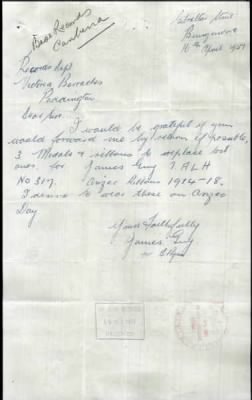 Base Records
Canberra
Street
Bungendore
16th April 1951
Records Dept
Victoria Barracks
Paddington
Dear Sir.
I would be grateful if you
would forward me by return if possible,
3 Medals & ribbons to replace lost
ones. for James Guy 7 ALH
No 317. Anzac Ribbons 1914-18.
I desire to wear these on Anzac
Day
Yours Faithfully
James Guy